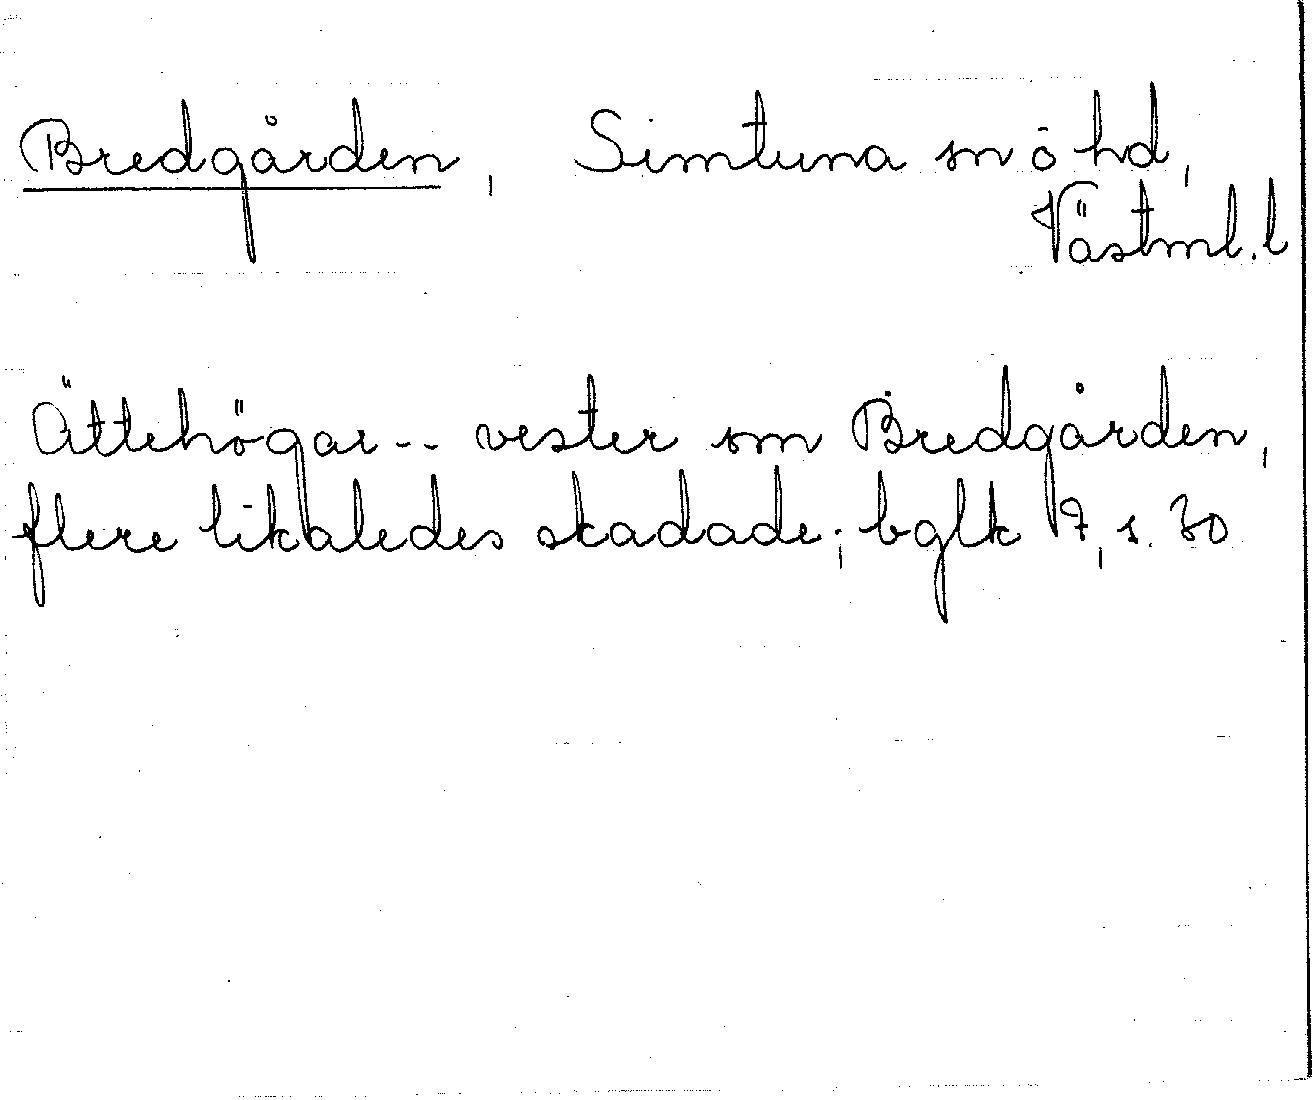 Bredgården, Simtuna sn ö hd,
Västml. l
Ättehögar -- vester om Bredgården,
flere likaledes skadade; bglk 17, s. 30